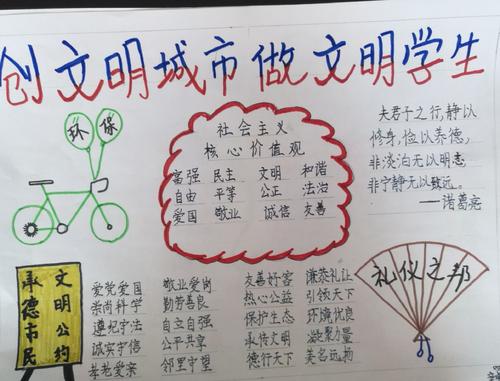 创文明城市做文明学生
环保
社会主义
核心价值观
富强 民主 文明 和谐
自由 平等 公正 法治
爱国 敬业 诚信 友善
夫君子之行,静以
修身,俭以养德,
非淡泊无以明志
非宁静无以致远。
——诸葛亮
承德市民
文明公约
爱党爱国
崇尚科学
遵纪守法
诚实守信
孝老爱亲
敬业爱岗
勤劳善良
自立自强
公平共享
邻里守望
友善好客
热心公益
保护生态
传承文明
德行天下
谦恭礼让
引领天下
环境优良
凝聚力量
美名远扬
礼仪之邦